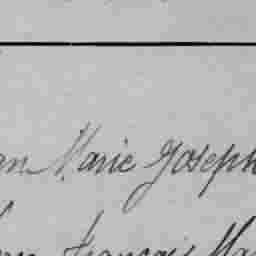 an Marie Joseph
François Ma